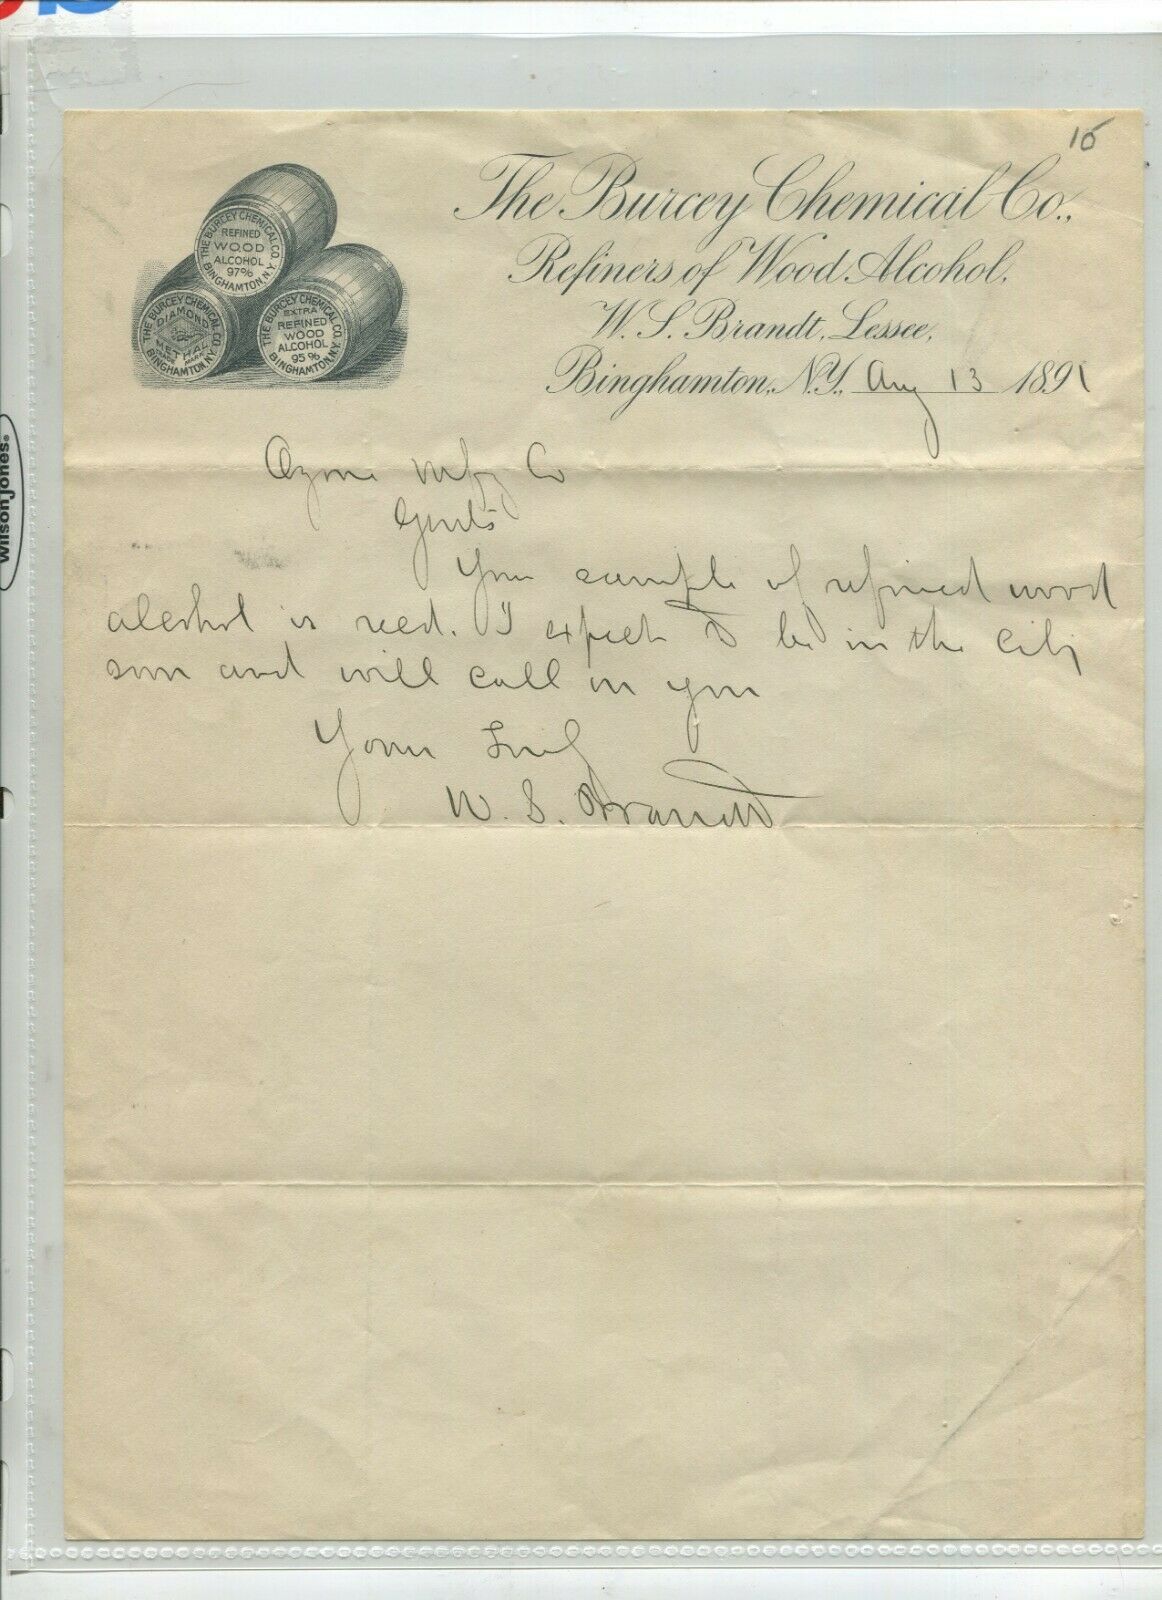 15
The Burcey Chemical Co.,
Refiners of Wood Alcohol,
W. S. Brandt, Lessee,
Binghamton, N.Y., Aug 13 1891
THE BURCEY CHEMICAL CO.
REFINED
WOOD
ALCOHOL
97%
BINGHAMTON, N.Y.
THE BURCEY CHEMICAL CO.
DIAMOND
METHAL
TRADE MARK
BINGHAMTON, N.Y.
THE BURCEY CHEMICAL CO.
EXTRA
REFINED
WOOD
ALCOHOL
95%
BINGHAMTON, N.Y.
Ozone Mfg Co
Gents
Your sample of refined wood
alcohol is recd. I expect to be in the city
soon and will call on you
Yours Truly
W. S. Brandt
WilsonJones®